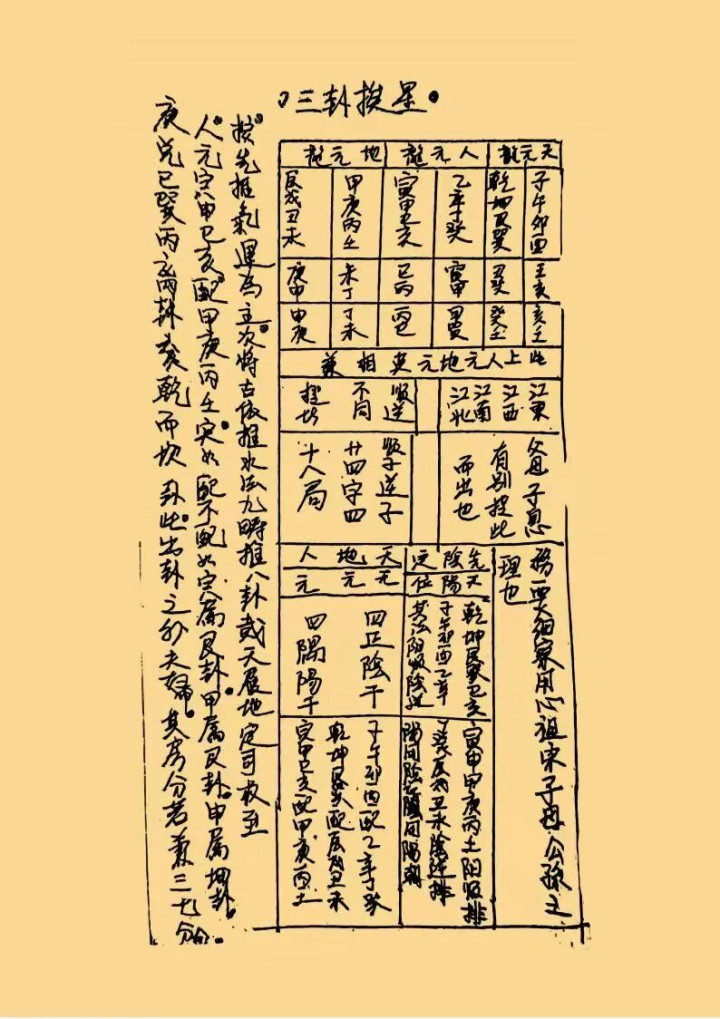 三卦挨星
天元龍
人元龍
地元龍
子午卯酉
乾坤艮巽
乙辛丁癸
寅申巳亥
甲庚丙壬
辰戌丑未
壬亥
巳丙
未丁
庚申
亥壬
癸壬
丙巳
丁未
申庚
此上人元地元英相兼
江東
江西
江南
江北
順逆
不同
挨
父母子息
有别挨此
而出也
順子逆子
廿四字四
十八局
務要細察用心祖宗子母公孫之
理也
先天
陰陽
定位
天元
地元
人元
乾坤艮巽巳亥
子午卯酉乙辛
其法陽順陰逆
四正陰干
四隅陽干
寅申甲庚丙壬陽順排
丁癸辰戌丑未陰逆排
子午卯酉配乙辛丁癸
乾坤艮巽配辰戌丑未
寅申巳亥配甲庚丙壬
按先推氣運為主次將古依推水法九疇推八卦戴天履地定司
人元寅申巳亥配甲庚丙壬寅如配不配如寅屬艮卦甲屬艮卦申屬坤卦
庚兑巳巽丙离卦亥乾而坎卦此出卦之外夫婦其房分若兼三七分